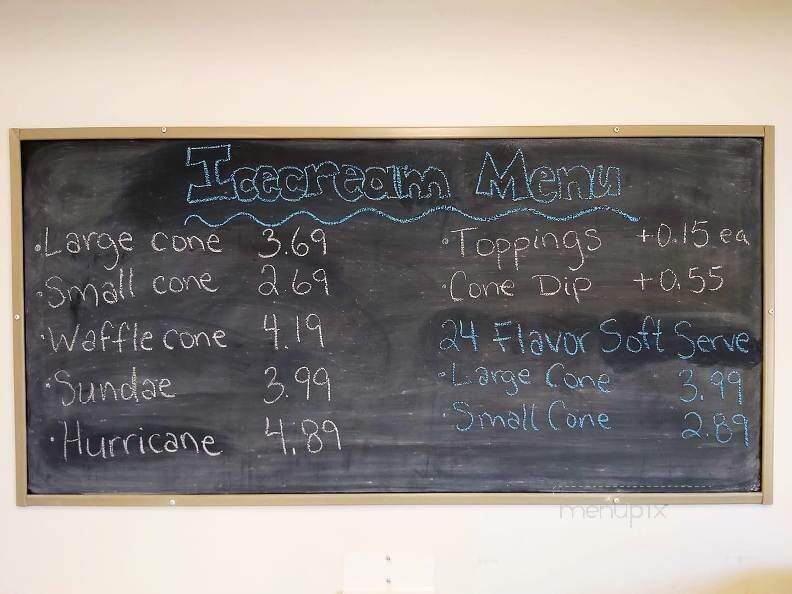 Icecream Menu
·Large cone 3.69
·Small cone 2.69
·Waffle cone 4.19
·Sundae 3.99
·Hurricane 4.89
·Toppings +0.15 ea
·Cone Dip +0.55
24 Flavor Soft Serve
·Large Cone 3.99
·Small Cone 2.89
menupix